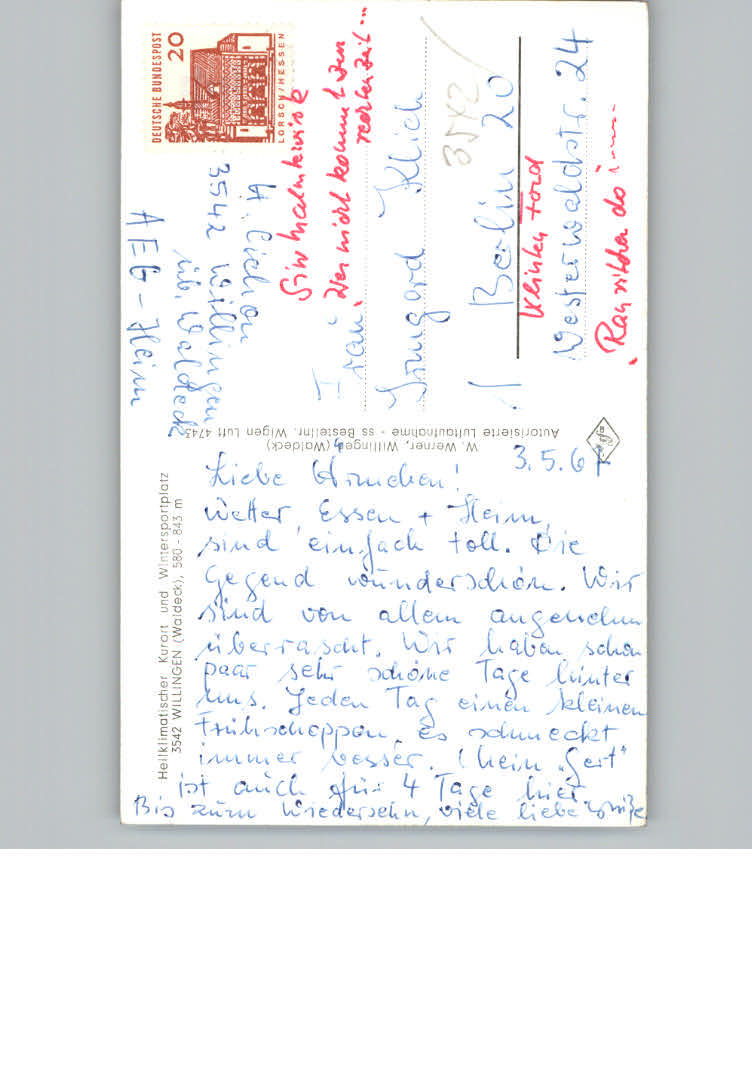 DEUTSCHE BUNDESPOST
20
LORSCH/HESSEN
H. Cichon
3542 Willingen
üb. Waldeck
AEG-Heim
Wer nicht kommt zur
rechten Zeit...
Frau
Irmgard Klich
3542
1 Berlin 20
Westerwaldstr. 24
W. Werner, Willingen (Waldeck)
Autorisierte Luftaufnahme - ss Bestellnr. Wigen Luft 4743
Heilklimatischer Kurort und Wintersportplatz
3542 WILLINGEN (Waldeck), 580 - 843 m
3.5.67
Liebe
Wetter, Essen + Heim,
sind einfach toll. Die
Gegend wunderschön. Wir
sind von allem angenehm
überrascht. Wir haben schon
paar sehr schöne Tage hinter
uns. Jeden Tag einen kleinen
Frühschoppen, es schmeckt
immer besser. Mein "Gert"
ist auch für 4 Tage hier
Bis zum Wiedersehn, viele liebe Grüße